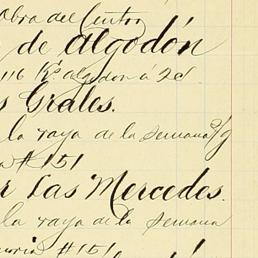 Obra del Centro
de algodón
116 Ks algodon á 2s
s Grales.
la raya de la semana
a # 151
r Las Mercedes.
la raya de la semana
# 151